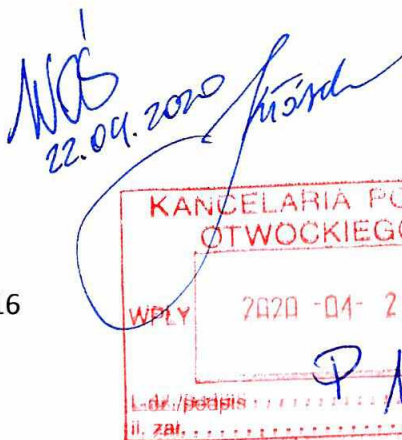 WOŚ
22.04.2020
KANCELARIA PO
OTWOCKIEGO
16
WPŁY 2020 -04- 2
L.dz./podpis
il. zał.